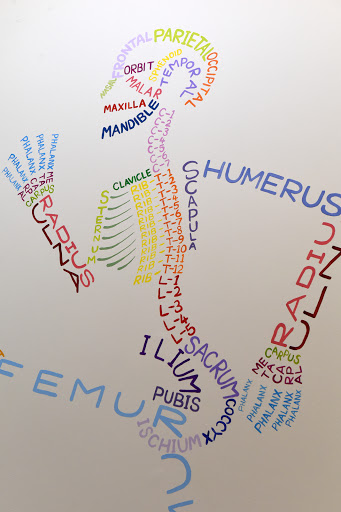 FRONTAL
PARIETAL
OCCIPITAL
NASAL
ORBIT
SPHENOID
TEMPORAL
MALAR
MAXILLA
MANDIBLE
C-1
C-2
C-3
C-4
C-5
C-6
C-7
CLAVICLE
STERNUM
SCAPULA
HUMERUS
RIB
RIB
RIB
RIB
RIB
RIB
RIB
RIB
RIB
RIB
RIB
RIB
T-1
T-2
T-3
T-4
T-5
T-6
T-7
T-8
T-9
T-10
T-11
T-12
L-1
L-2
L-3
L-4
L-5
PHALANX
PHALANX
PHALANX
PHALANX
PHALANX
METACARPAL
CARPUS
RADIUS
ULNA
RADIU
ULN
CARPUS
METACARPAL
PHALANX
PHALANX
PHALANX
PHALANX
PHALANX
ILIUM
SACRUM
PUBIS
COCCYX
ISCHIUM
FEMUR